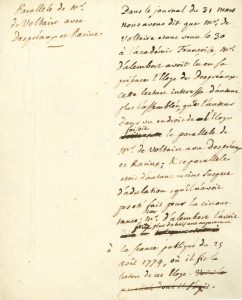 Parallele de Mr.
de Voltaire avec
Despréaux et Racine.
Dans le journal du 31 mars
nous avons dit que Mr. de
Voltaire etant venu le 30
à l'académie Françoise Mr.
d'alembert avoit lu en sa
présence l'Eloge de Despréaux.
Cette lecture interessa d'autant
plus l'assemblée, que l'auteur
dans un endroit de l'Eloge
faisoit le parallele de
Mr. de Voltaire avec Despréaux
et Racine; & ce parallele
etoit d'autant moins suspect
d'adulation qu'il n'avoit
pas été fait pour la circons
tance, Mr. d'alembert l'avoit
plus de trois ans auparavant
à la séance publique du 25
août 1774, où il fit la
lecture de cet Eloge.